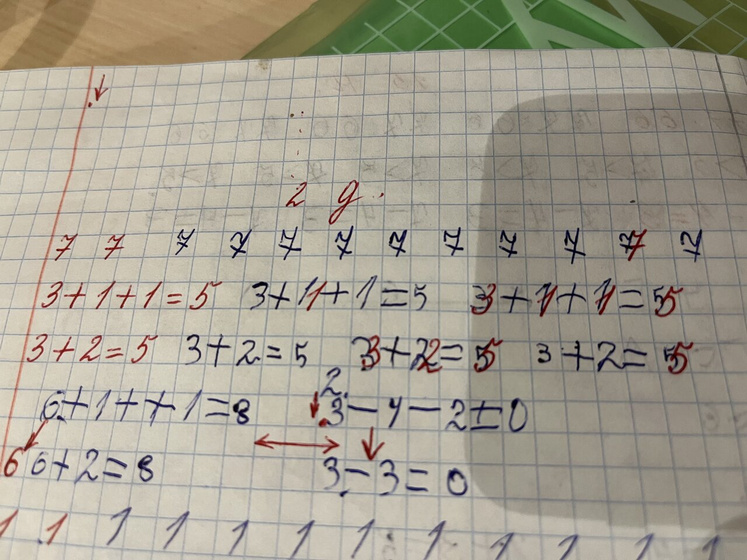 2 g.
7 7 7 7 7 7 7 7 7 7 7 7
3+1+1=5 3+1+1=5 3+1+1=5
3+2=5 3+2=5 3+2=5 3+2=5
2.
6+1+1=8 3-1-2=0
6 6+2=8 3-3=0
1 1 1 1 1 1 1 1 1 1 1 1